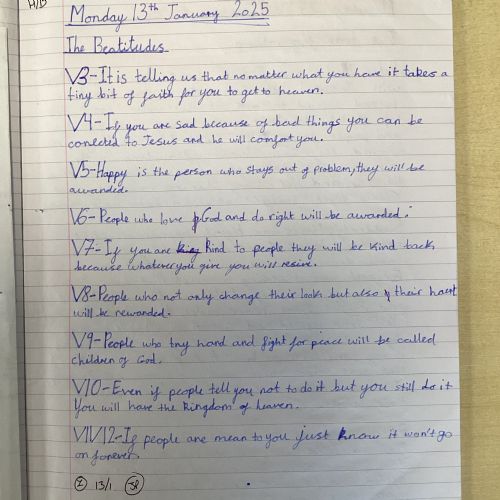 H/D
Monday 13th January 2025
The Beatitudes
V3-It is telling us that no matter what you have it takes a
tiny bit of faith for you to get to heaven.
V4-If you are sad because of bad things you can be
conected to Jesus and he will comfort you.
V5-Happy is the person who stays out of problem, they will be
awarded.
V6-People who love God and do right will be awarded.
V7-If you are kind to people they will be kind back,
because whatever you give you will resive.
V8-People who not only change their look but also their heart
will be rewarded.
V9-People who try hard and fight for peace will be called
children of God.
V10-Even if people tell you not to do it but you still do it
you will have the kingdom of heaven.
V11V12-If people are mean to you just know it won't go
on forever.
I 13/1